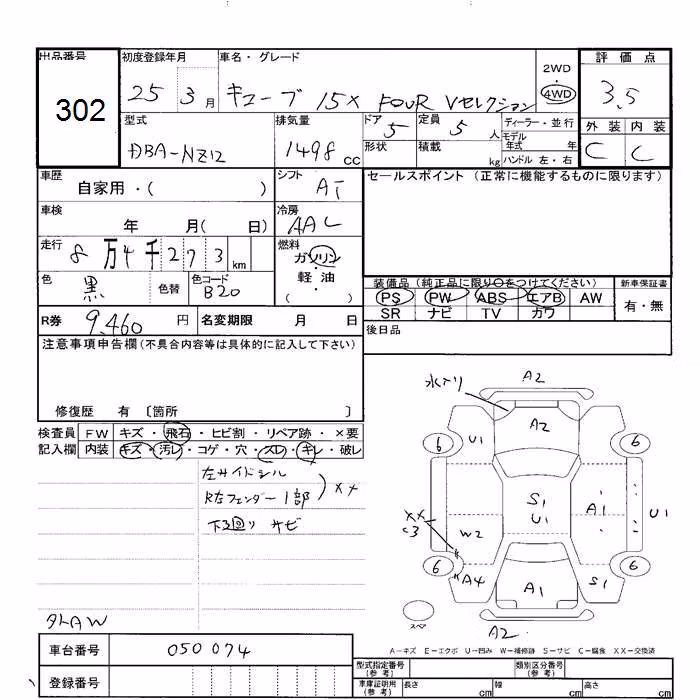 出品番号 初度登録年月 車名・グレード 2WD 評価点
302 25 3月 キューブ 15X FOUR Vセレクション 4WD 3.5
型式 排気量 ドア 5 定員 5人 ディーラー・並行 外装 内装
DBA-NZ12 1498cc 形状 積載 kg モデル年式 年 C C
ハンドル 左・右
車歴 シフト AT セールスポイント(正常に機能するものに限ります)
自家用・( )
車検 年 月( 日) 冷房 AAC
走行 8万4千273km 燃料 ガソリン・軽油 ( )
色 黒 色替 色コード B20
装備品(純正品に限り○をつけてください) 新車保証書
PS PW ABS エアB AW 有・無
SR ナビ TV カワ
R券 9,460円 名変期限 月 日 後日品
注意事項申告欄(不具合内容等は具体的に記入して下さい)
修復歴 有 〔箇所 〕
検査員 FW キズ・飛石・ヒビ割・リペア跡・×要
記入欄 内装 キズ・汚レ・コゲ・穴・スレ・キレ・破レ
左サイドシル
R左フェンダー1部 XX
下回り サビ
外AW
水入り A2
U1 A2
6 6
S1 U1 A1 U1
XX C3 W2
6 6
A4 A1 S1
スペア A2
A-キズ E-エクボ U-凹み W-補修跡 S-サビ C-腐食 XX-交換済
車台番号 050074
登録番号
型式指定番号(参考) 類別区分番号(参考)
車庫証明用(参考) 長さ cm 幅 cm 高さ cm